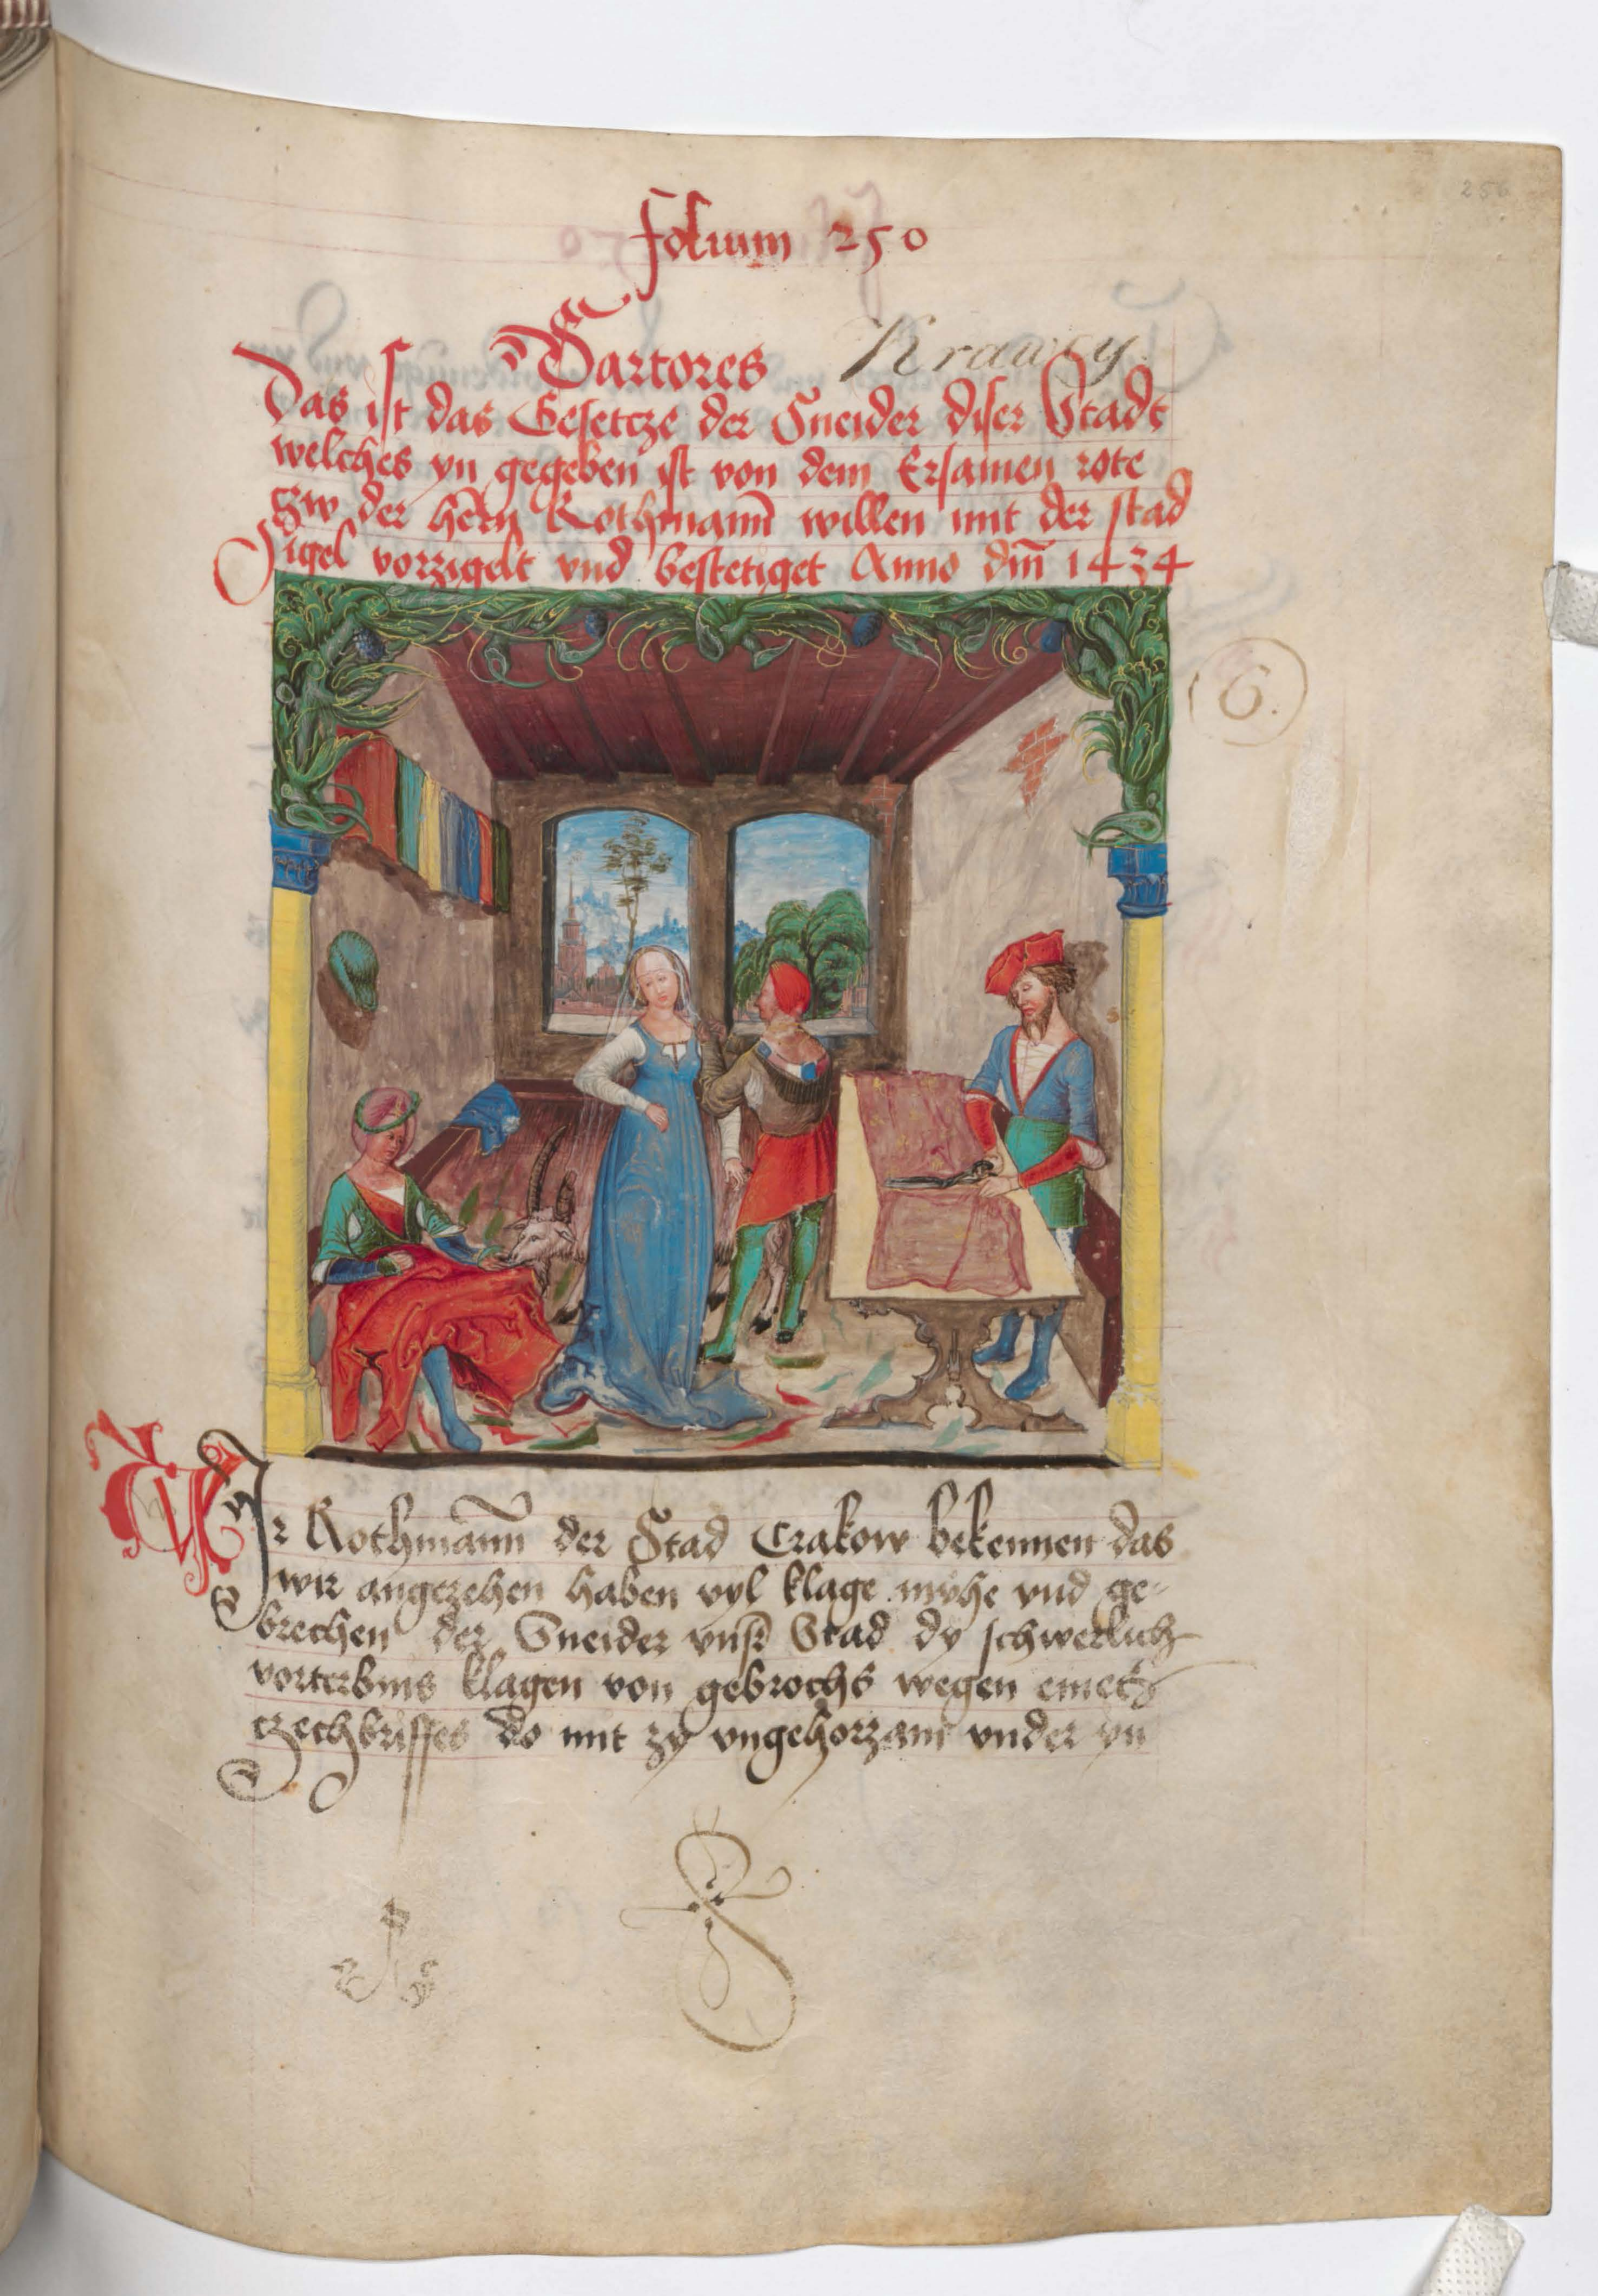 256
folium 250
Sartores Krawcy
Das ist das Gesetcze der Sneider diser Stadt
welches yn gegeben ist von dem Ersamen rote
czw der hern Rothmann willen mit der stad
Sigel vorzigelt vnd bestetiget Anno dm̄ 1434
6.
WIr Rothmann der Stad Crakow bekennen das
wir angezehen haben vyl klage mühe vnd ge-
brechen der Sneider vnsr Stad dy schwerlich
vorterbnis klagen von gebrochs wegen eines
czechbriffes do mit zy vngehorzam vnder yn